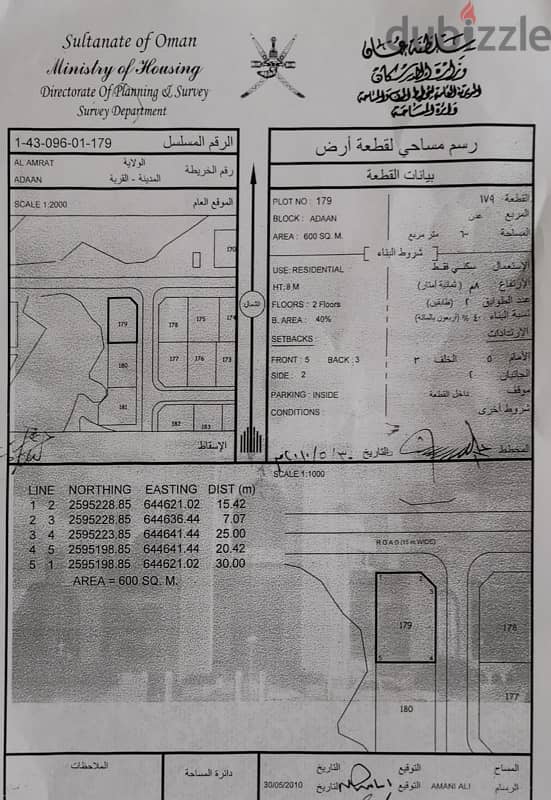 dubizzle
Sultanate of Oman
Ministry of Housing
Directorate Of Planning & Survey
Survey Department
سلطنة عمان
وزارة الإسكان
دائرة المساحة
1-43-096-01-179 الرقم المسلسل
AL AMRAT الولاية
رقم الخريطة
ADAAN المدينة - القرية
SCALE 1:2000 الموقع العام
170
179
178
175
174
180
177
176
173
181
182
183
الإسقاط
الشمال
رسم مساحي لقطعة أرض
بيانات القطعة
PLOT NO : 179 القطعة ١٧٩
BLOCK : ADAAN المربع عدن
AREA : 600 SQ. M. المساحة ٦٠٠ متر مربع
شروط البناء
USE: RESIDENTIAL الإستعمال سكني فقط
HT: 8 M الارتفاع ٨م (ثمانية أمتار)
FLOORS : 2 Floors عدد الطوابق ٢ (طابقين)
B. AREA : 40% نسبة البناء ٤٠ % (أربعون بالمائة)
SETBACKS : الارتدادات
FRONT : 5 BACK : 3 الأمام ٥ الخلف ٣
SIDE : 2 الجانبان ٢
PARKING : INSIDE موقف داخل القطعة
CONDITIONS : شروط أخرى
المخطط التاريخ
SCALE 1:1000
LINE NORTHING EASTING DIST (m)
1 2 2595228.85 644621.02 15.42
2 3 2595228.85 644636.44 7.07
3 4 2595223.85 644641.44 25.00
4 5 2595198.85 644641.44 20.42
5 1 2595198.85 644621.02 30.00
AREA = 600 SQ. M.
ROAD (15 m WIDE)
1
2
3
179
178
5
4
177
180
الملاحظات
دائرة المساحة
التاريخ التوقيع المساح
30/05/2010 التاريخ التوقيع AMANI ALI الرسام